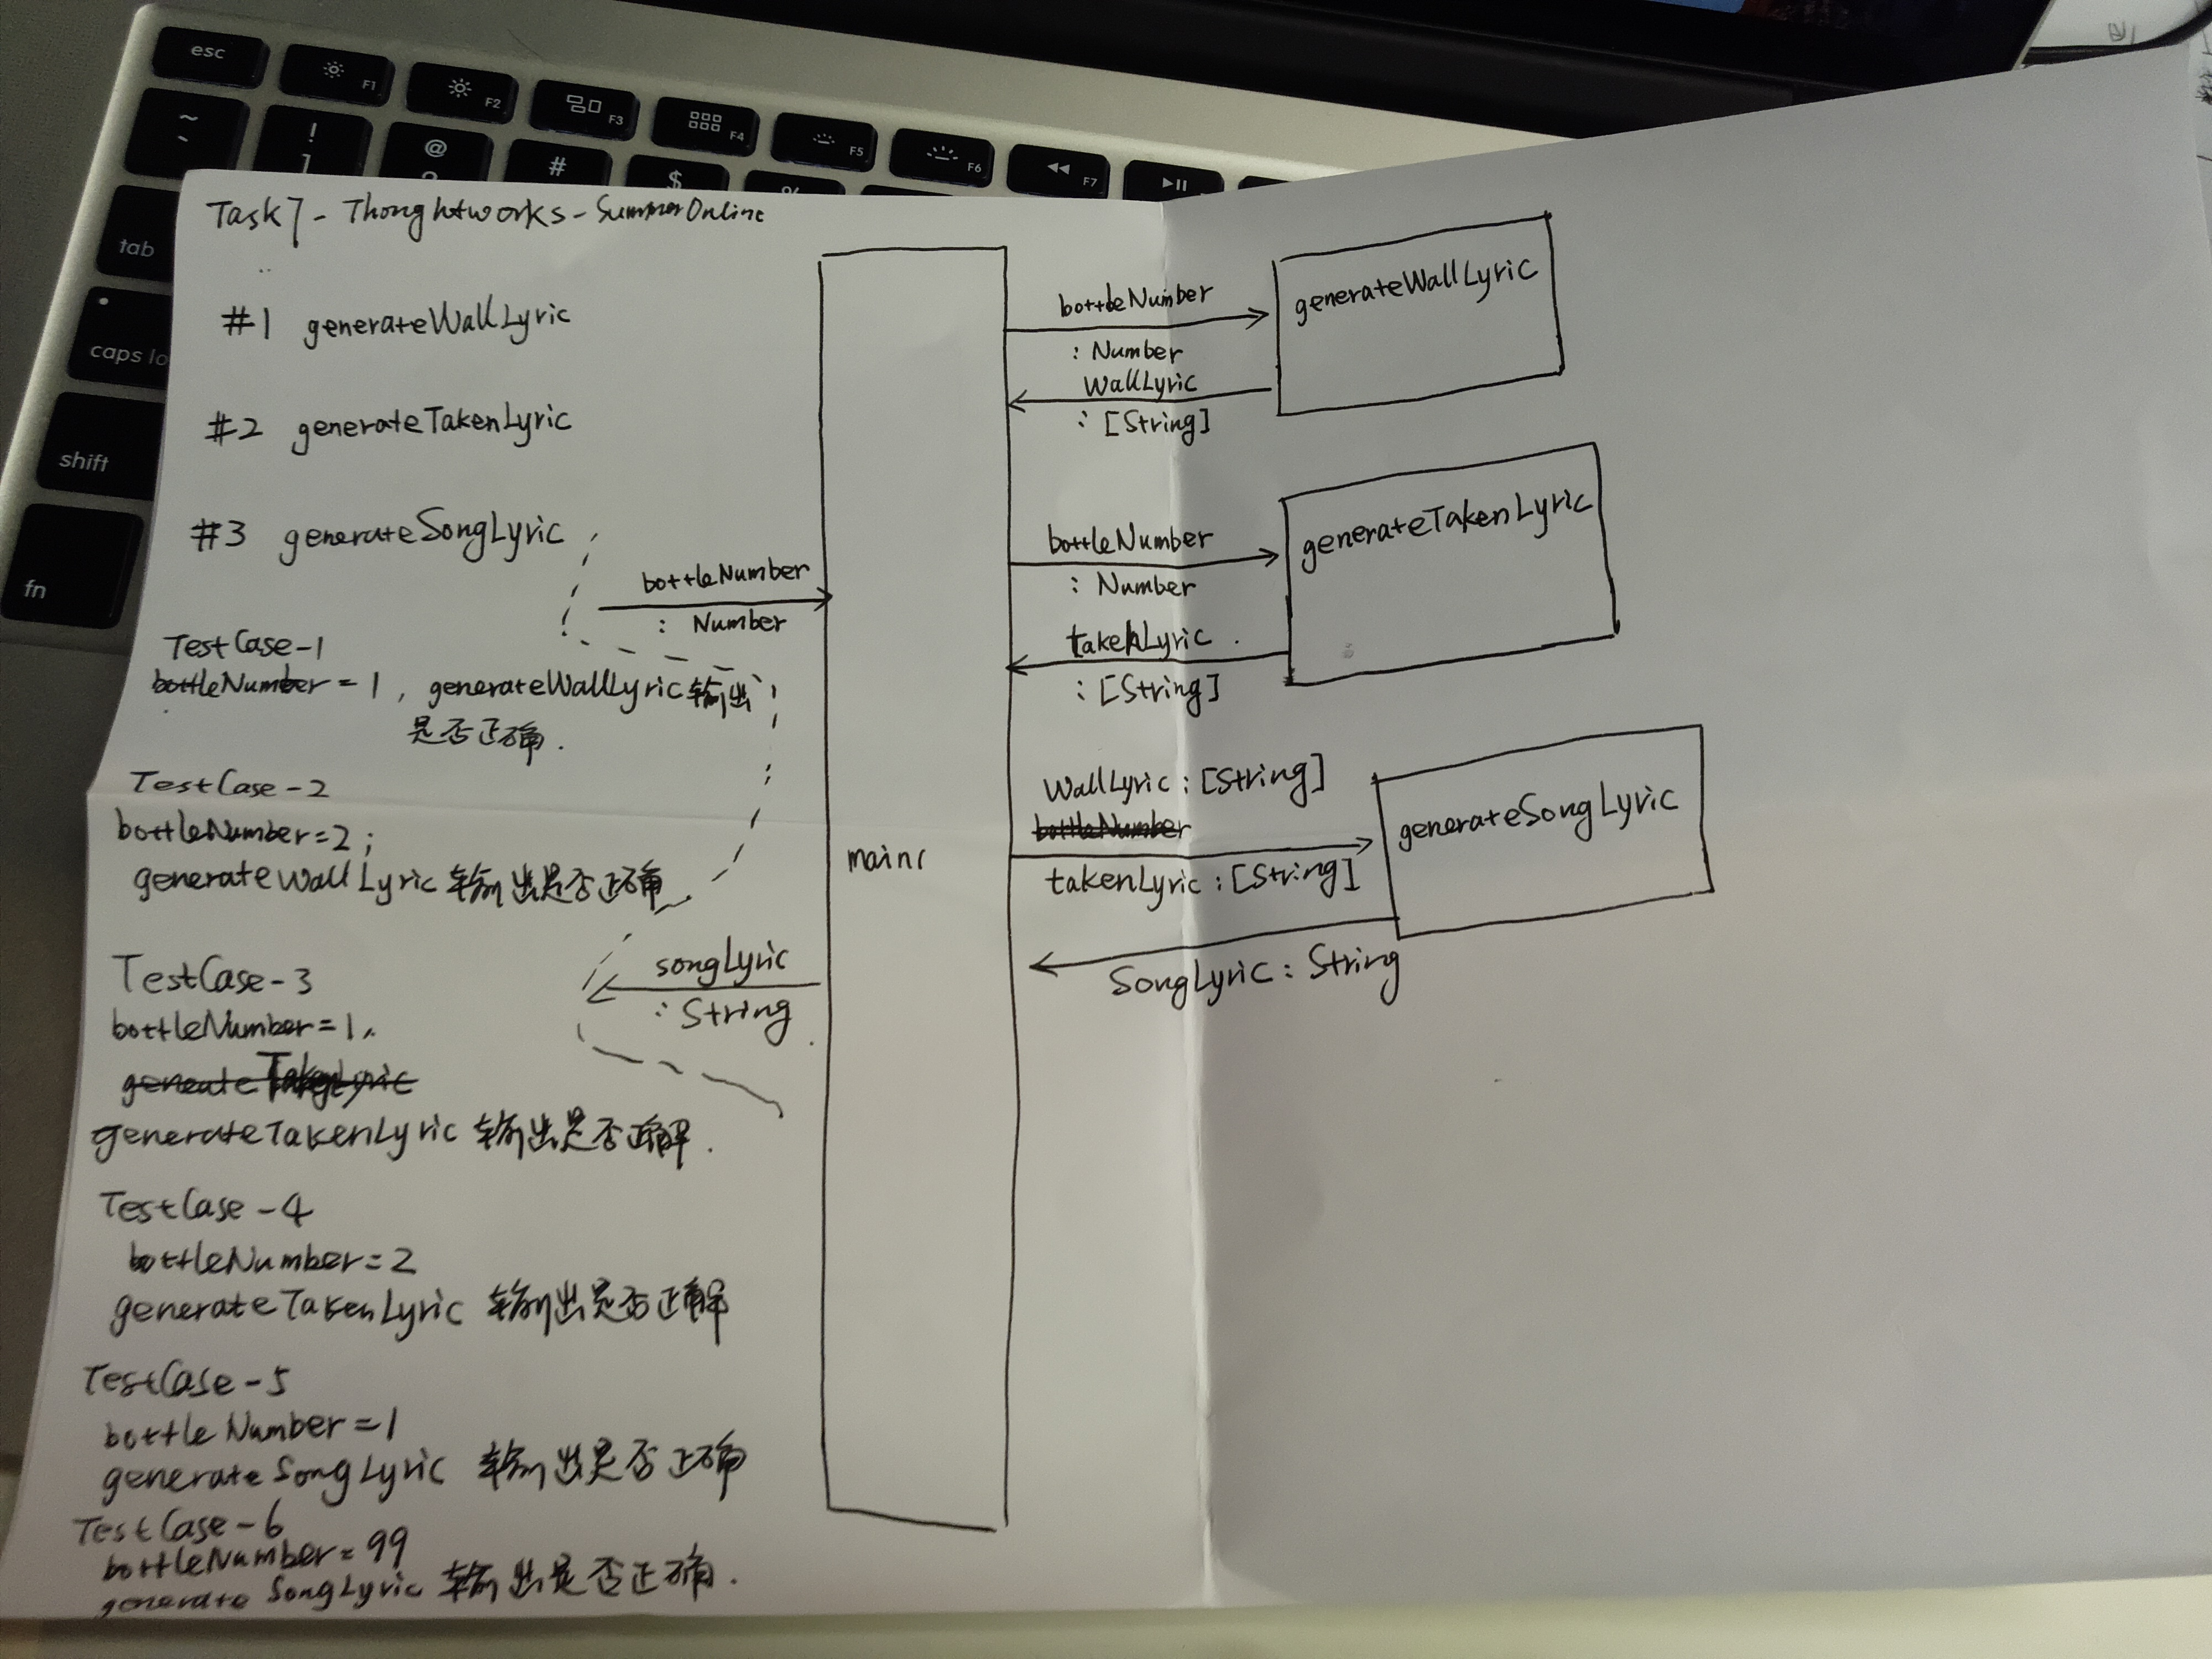 esc
F1
F2
F3
F4
F5
F6
F7
~
!
1
@
#
$
%
tab
caps lo
shift
fn
Task7 - Thoughtworks - SummerOnline
#1 generateWallLyric
#2 generateTakenLyric
#3 generateSongLyric
TestCase-1
bottleNumber = 1, generateWallLyric 输出
是否正确.
TestCase-2
bottleNumber=2;
generateWallLyric 输出是否正确
TestCase-3
bottleNumber=1,
generateTakenLyric 输出是否正解.
TestCase-4
bottleNumber=2
generateTakenLyric 输出是否正解
TestCase-5
bottleNumber=1
generateSongLyric 输出是否正确
TestCase-6
bottleNumber=99
generateSongLyric 输出是否正确.
bottleNumber
: Number
songLyric
: String
main
bottleNumber
: Number
WallLyric
: [String]
generateWallLyric
bottleNumber
: Number
takenLyric
: [String]
generateTakenLyric
WallLyric : [String]
bottleNumber
takenLyric : [String]
generateSongLyric
SongLyric : String